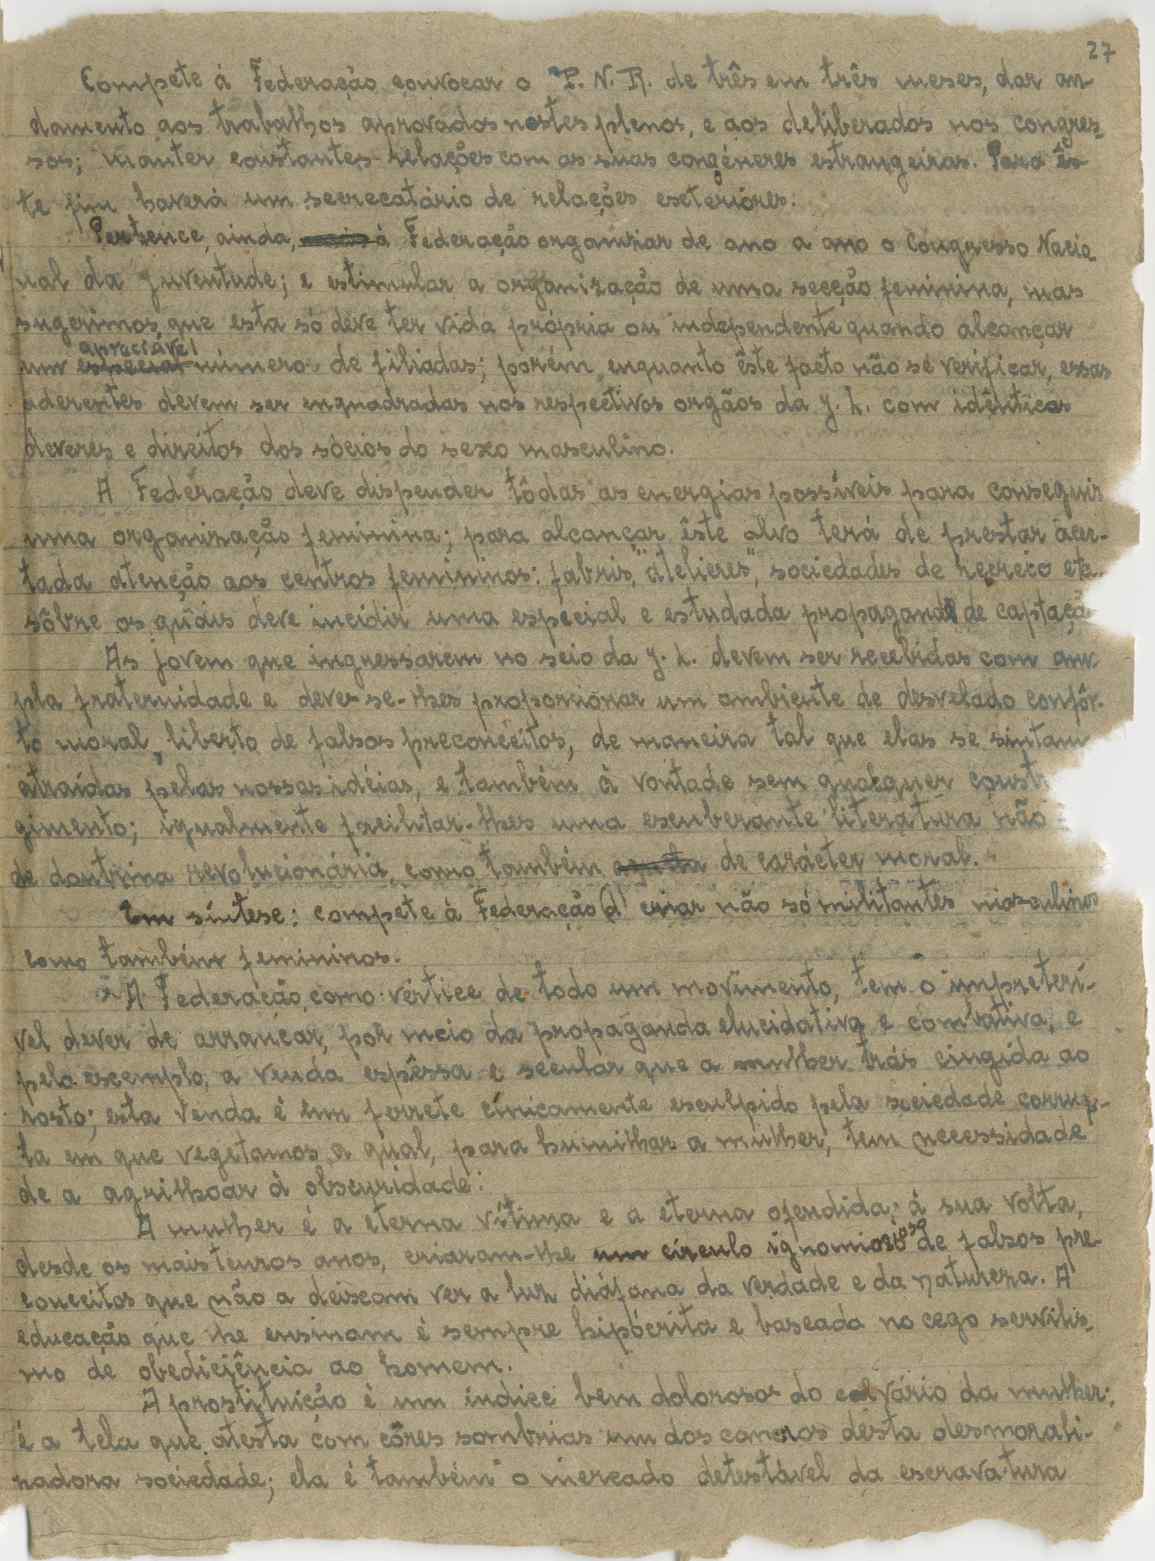 27
Compete á Federação convocar o P. N. R. de três em três meses, dar an-
damento aos trabalhos aprovados nestes plenos, e aos deliberados nos congres-
sos; manter constantes relações com as suas congéneres estrangeiras. Para ês-
te fim haverá um secrecatário de relações esxterióres.
Pertence, ainda, á Federação organizar de ano a ano o Congresso Nacio
nal da Juventude; e estimular a organização de uma secção feminina, mas
sugerimos, que esta só deve ter vida própria ou independente quando alcançar
apreciável
um especial número de filiadas; porém, enquanto êste facto não se verificar, essas
aderentes devem ser enquadradas nos respectivos orgãos da J. L. com idênticos
deveres e direitos dos sócios do sexo masculino.
A Federação deve dispender tôdas as energias possíveis para conseguir
uma organização feminina; para alcançar êste alvo terá de prestar acer-
tada atenção aos centros femininos: fabris, "atelieres", sociedades de recreio etc.
sôbre os quáis deve incidir uma especial e estudada propaganda de captaçã
As jovem que ingressarem no seio da J. L. devem ser recebidas com am-
pla fraternidade e deve-se-lhes proporciónar um ambiente de desvelado confôr-
to moral, liberto de falsos preconceitos, de maneira tal que elas se sintam
atraídas pelas nossas idéias, e também á vontade sem qualquer constr
gimento; igualmente facilitar-lhes uma esxuberante literatura não
de doutrina revolucionária, como também de carácter moral.
Em síntese: compete á Federação (a) criar não só militantes masculinos
como também femininos.
A Federação, como vértice de todo um movimento, tem o impreterí-
vel dever de arrancar, por meio da propaganda elucidativa e combativa, e
pelo esxemplo, a venda espêssa e secular que a mulher trás cingida ao
rosto; esta venda é um ferrete cínicamente esculpido pela sociedade corrup-
ta em que vegetamos, a qual, para humilhar a mulher, tem necessidade
de a agrilhoar á obscuridade.
A mulher é a eterna vítima e a eterna ofendida; á sua volta,
desde os mais tenros anos, criaram-lhe um círculo ignominioso de falsos pre-
conceitos que não a deixam ver a luz diáfana da verdade e da natureza. A
educação que lhe ensinam é sempre hipócrita e baseada no cego servilis-
mo de obediciência ao homem.
A prostituição é um índice bem doloroso do calvário da mulher;
é a tela que atesta com côres sombrias um dos cancros desta desmorali-
zadora sociedade; ela é também o mercado detestável da escravatura